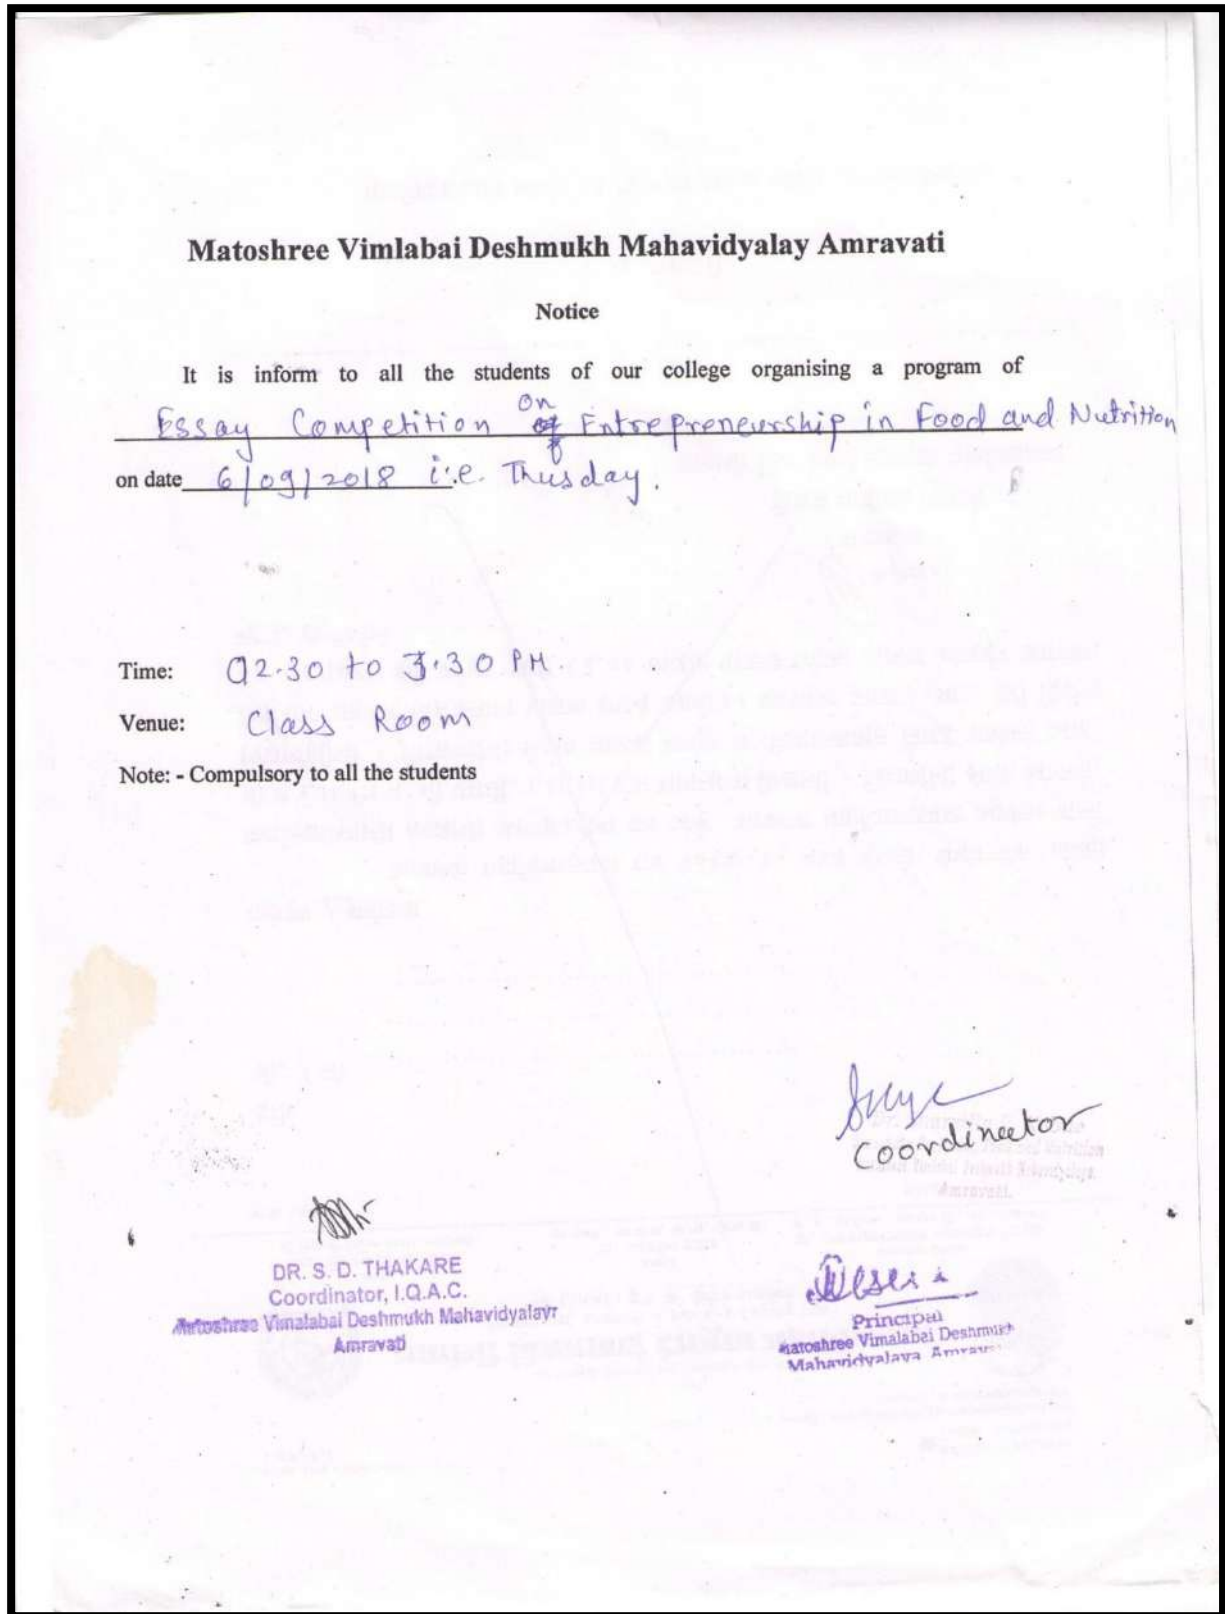 Matoshree Vimlabai Deshmukh Mahavidyalay Amravati
Notice
It is inform to all the students of our college organising a program of
Essay Competition On Entrepreneurship in Food and Nutrition
on date 6/09/2018 i.e. Thusday.
Time: 02.30 to 3.30 PM
Venue: Class Room
Note: - Compulsory to all the students
Coordinator
DR. S. D. THAKARE
Coordinator, I.Q.A.C.
Matoshree Vimalabai Deshmukh Mahavidyalayr
Amravati
Principal
Matoshree Vimalabai Deshmukh
Mahavidyalaya Amravati